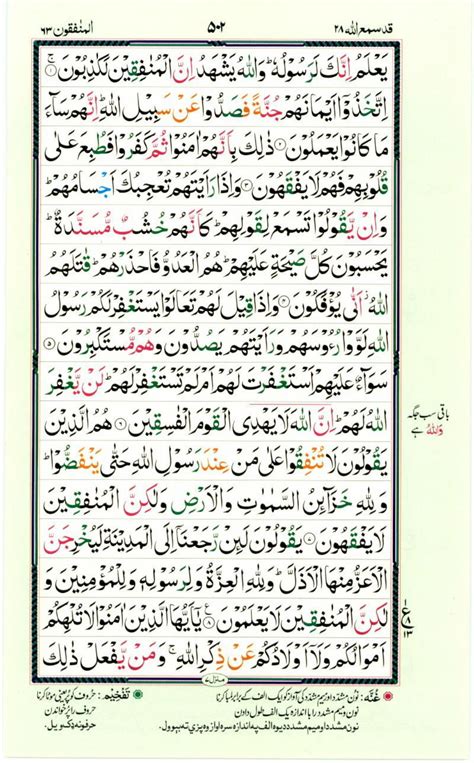 قد سمع الله ٢٨
٥٠٢
المنٰفقون ٦٣
يَعْلَمُ اِنَّكَ لَرَسُوْلُهٗ ؕ وَاللّٰهُ يَشْهَدُ اِنَّ الْمُنٰفِقِيْنَ لَكٰذِبُوْنَ ۚ ۝١
اِتَّخَذُوْۤا اَيْمَانَهُمْ جُنَّةً فَصَدُّوْا عَنْ سَبِيْلِ اللّٰهِ ؕ اِنَّهُمْ سَآءَ
مَا كَانُوْا يَعْمَلُوْنَ ۝٢ ذٰلِكَ بِاَنَّهُمْ اٰمَنُوْا ثُمَّ كَفَرُوْا فَطُبِعَ عَلٰى
قُلُوْبِهِمْ فَهُمْ لَا يَفْقَهُوْنَ ۝٣ وَاِذَا رَاَيْتَهُمْ تُعْجِبُكَ اَجْسَامُهُمْ ؕ
وَاِنْ يَّقُوْلُوْا تَسْمَعْ لِقَوْلِهِمْ ؕ كَاَنَّهُمْ خُشُبٌ مُّسَنَّدَةٌ ؕ
يَحْسَبُوْنَ كُلَّ صَيْحَةٍ عَلَيْهِمْ ؕ هُمُ الْعَدُوُّ فَاحْذَرْهُمْ ؕ قٰتَلَهُمُ
اللّٰهُ ۫ اَنّٰى يُؤْفَكُوْنَ ۝٤ وَاِذَا قِيْلَ لَهُمْ تَعَالَوْا يَسْتَغْفِرْ لَكُمْ رَسُوْلُ
اللّٰهِ لَوَّوْا رُءُوْسَهُمْ وَرَاَيْتَهُمْ يَصُدُّوْنَ وَهُمْ مُّسْتَكْبِرُوْنَ ۝٥
سَوَآءٌ عَلَيْهِمْ اَسْتَغْفَرْتَ لَهُمْ اَمْ لَمْ تَسْتَغْفِرْ لَهُمْ ؕ لَنْ يَّغْفِرَ
اللّٰهُ لَهُمْ ؕ اِنَّ اللّٰهَ لَا يَهْدِى الْقَوْمَ الْفٰسِقِيْنَ ۝٦ هُمُ الَّذِيْنَ
يَقُوْلُوْنَ لَا تُنْفِقُوْا عَلٰى مَنْ عِنْدَ رَسُوْلِ اللّٰهِ حَتّٰى يَنْفَضُّوْا ؕ
وَلِلّٰهِ خَزَآئِنُ السَّمٰوٰتِ وَالْاَرْضِ وَلٰكِنَّ الْمُنٰفِقِيْنَ
لَا يَفْقَهُوْنَ ۝٧ يَقُوْلُوْنَ لَئِنْ رَّجَعْنَاۤ اِلَى الْمَدِيْنَةِ لَيُخْرِجَنَّ
الْاَعَزُّ مِنْهَا الْاَذَلَّ ؕ وَلِلّٰهِ الْعِزَّةُ وَلِرَسُوْلِهٖ وَلِلْمُؤْمِنِيْنَ وَ
لٰكِنَّ الْمُنٰفِقِيْنَ لَا يَعْلَمُوْنَ ۝٨ يٰۤاَيُّهَا الَّذِيْنَ اٰمَنُوْا لَا تُلْهِكُمْ
اَمْوَالُكُمْ وَلَاۤ اَوْلَادُكُمْ عَنْ ذِكْرِ اللّٰهِ ۚ وَمَنْ يَّفْعَلْ ذٰلِكَ
باقی سب جگہ
وَاللّٰهُ ہے
ع
١٣
منزل ٧
غُنَّه: نون مشدد اور میم مشدد کی آواز کو ایک الف کے برابر لمبا کرنا
نون و میم مشدد را به اندازه یک الف طول دادن
نون مشدد او ميم مشدد ديوه الف په اندازه
تَفْخِيْم: حروف کو پُر یعنی موٹا کرنا
حروف را پر خواندن
حرفونه ډک ويل.